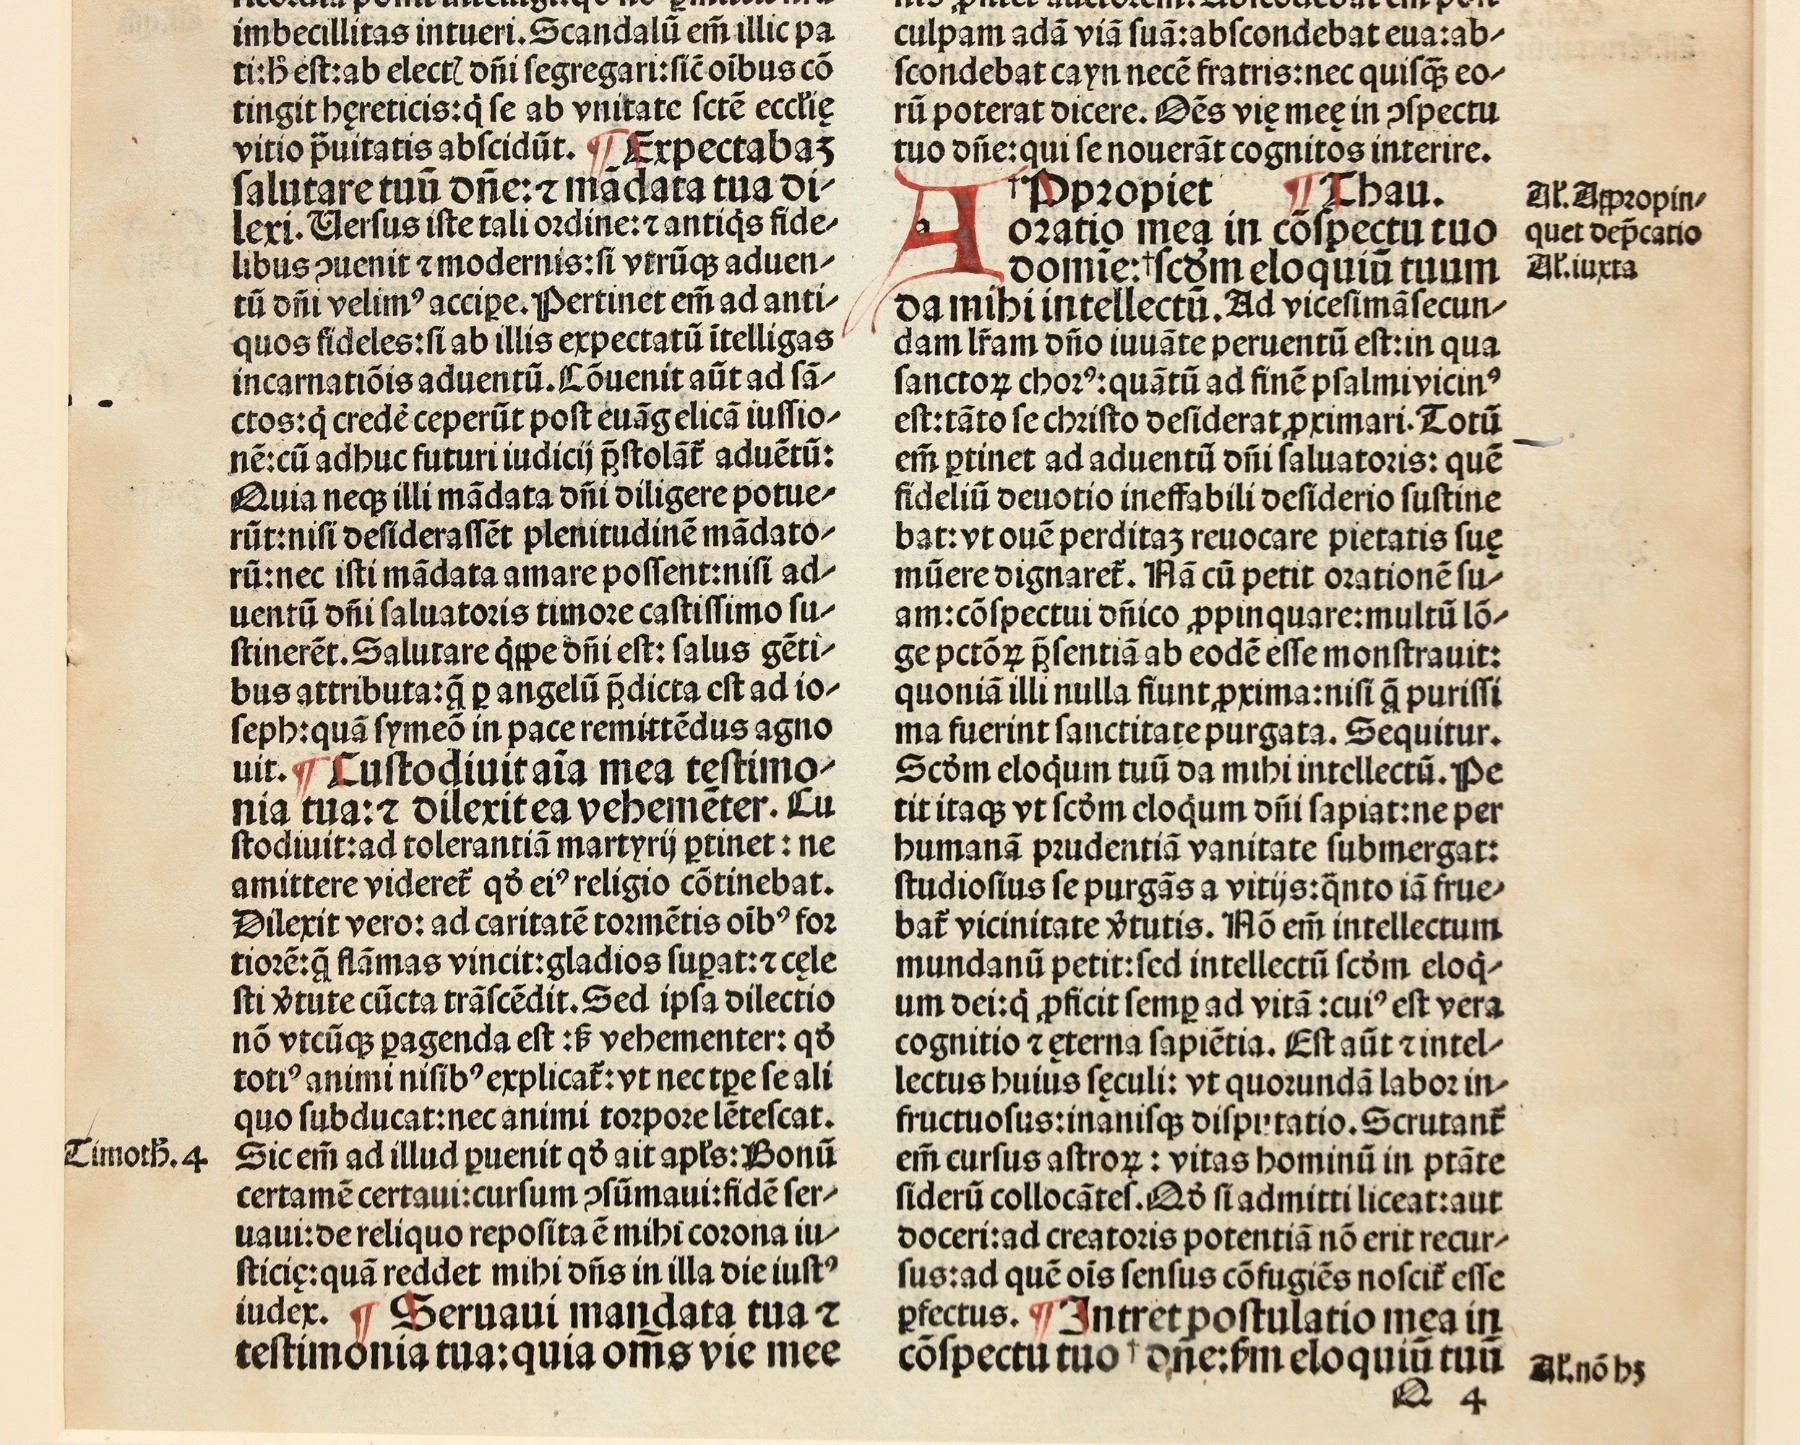 imbecillitas intueri. Scandalū em̄ illic pa
ti: h̄ est: ab elect̄ dn̄i segregari: sic̄ oībus cō
tingit hęreticis: q̇ se ab vnitate sctē eccl̄ię
vitio p̄uitatis abscidūt. ¶ Expectabaꝫ
salutare tuū dn̄e: ⁊ mādata tua di⸗
lexi. Uersus iste tali ordine: ⁊ antiq̇s fide⸗
libus ꝯuenit ⁊ modernis: si vtrūqꝫ aduen⸗
tū dn̄i velimꝰ accipe. Pertinet em̄ ad anti⸗
quos fideles: si ab illis expectatū ītelligas
incarnatiōis aduentū. Cōuenit aūt ad sā⸗
ctos: q̇ credē ceperūt post euāgelicā iussio⸗
nē: cū adhuc futuri iudicij p̄stolāt̄ aduētū:
Quia neqꝫ illi mādata dn̄i diligere potue⸗
rūt: nisi desiderassēt plenitudinē mādato⸗
rū: nec isti mādata amare possent: nisi ad⸗
uentū dn̄i saluatoris timore castissimo su⸗
stinerēt. Salutare q̇ppe dn̄i est: salus gēti⸗
bus attributa: q̄ ꝑ angelū p̄dicta est ad io⸗
seph: quā symeō in pace remittēdus agno
uit. ¶ Custodiuit aīa mea testimo⸗
nia tua: ⁊ dilexit ea vehemēter. Cu
stodiuit: ad tolerantiā martyrij ꝑtinet: ne
amittere videret̄ qđ eiꝰ religio cōtinebat.
Dilexit vero: ad caritatē tormētis oībꝰ for
tiorē: q̄ flāmas vincit: gladios suꝑat: ⁊ cęle
sti v̓tute cūcta trāscēdit. Sed ipsa dilectio
nō vtcūqꝫ ꝑagenda est: s̄ vehementer: qđ
totiꝰ animi nisibꝰ explicat̄: vt nec tꝑe se ali
quo subducat: nec animi torpore lētescat.
Timoth̄. 4
Sic em̄ ad illud ꝑuenit qđ ait apl̄s: Bonū
certamē certaui: cursum ꝯsūmaui: fidē ser⸗
uaui: de reliquo reposita ē mihi corona iu⸗
sticię: quā reddet mihi dn̄s in illa die iustꝰ
iudex. ¶ Seruaui mandata tua ⁊
testimonia tua: quia om̄s vie mee
culpam adā viā suā: abscondebat eua: ab⸗
scondebat cayn necē fratris: nec quisqꝫ̄ eo⸗
rū poterat dicere. Oēs vię meę in ꝯspectu
tuo dn̄e: qui se nouerāt cognitos interire.
A †Ppropiet ¶ Thau.
oratio mea in cōspectu tuo
domīe: †scđm eloquiū tuum
da mihi intellectū. Ad vicesimāsecun⸗
dam lr̄am dn̄o iuuāte peruentū est: in qua
sanctoꝝ chorꝰ: quātū ad finē psalmi vicinꝰ
est: tāto se christo desiderat ꝓximari. Totū
em̄ ꝑtinet ad aduentū dn̄i saluatoris: quē
fideliū deuotio ineffabili desiderio sustine
bat: vt ouē perditaꝫ reuocare pietatis suę
mūere dignaret̄. Nā cū petit orationē su⸗
am: cōspectui dn̄ico ꝓpinquare: multū lō⸗
ge pctōꝝ p̄sentiā ab eodē esse monstrauit:
quoniā illi nulla fiunt ꝓxima: nisi q̄ purissi
ma fuerint sanctitate purgata. Sequitur.
Scđm eloq̇um tuū da mihi intellectū. Pe
tit itaqꝫ vt scđm eloq̇um dn̄i sapiat: ne per
humanā prudentiā vanitate submergat:
studiosius se purgās a vitijs: q̄nto iā frue⸗
bat̄ vicinitate v̓tutis. Nō em̄ intellectum
mundanū petit: sed intellectū scđm eloq̇⸗
um dei: q̇ ꝓficit semꝑ ad vitā: cuiꝰ est vera
cognitio ⁊ ęterna sapiētia. Est aūt ⁊ intel⸗
lectus huius sęculi: vt quorundā labor in⸗
fructuosus: inanisqꝫ disputatio. Scrutant̄
em̄ cursus astroꝝ: vitas hominū in ptāte
siderū collocātes. Qđ si admitti liceat: aut
doceri: ad creatoris potentiā nō erit recur⸗
sus: ad quē oīs sensus cōfugiēs noscit̄ esse
ꝑfectus. ¶ Intret postulatio mea in
cōspectu tuo † dn̄e: s̄m eloquiū tuū
Q 4
Al̄. Appropin⸗
quet dep̄catio
Al̄. iuxta
Al̄. nō hꝫ